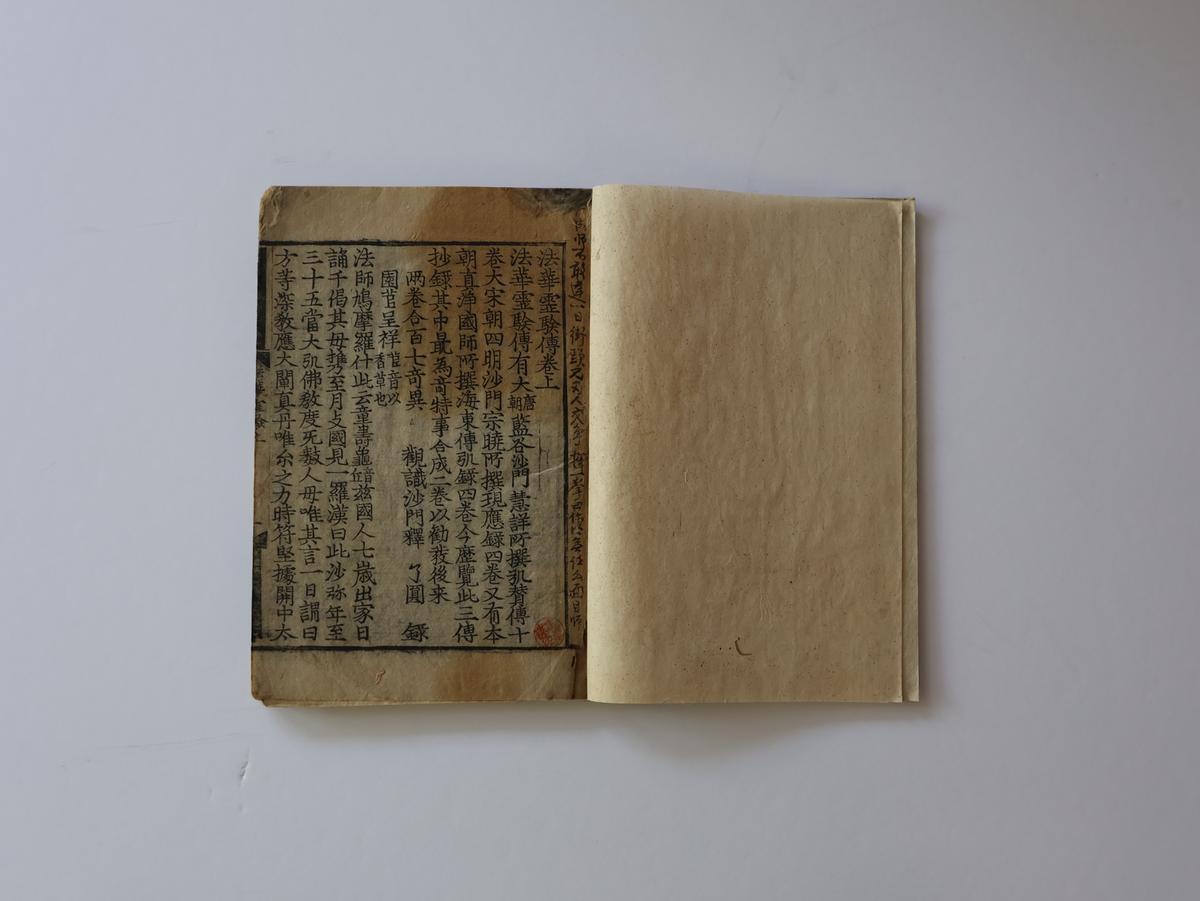 法華霊驗傳卷上
法華霊驗傳有大唐朝藍谷沙門慧詳所撰弘賛傳十
卷大宋朝四明沙門宗曉所撰現應録四卷又有本
朝真淨國師所撰海東傳弘録四卷今歷覽此三傳
抄録其中最為竒特事合成二卷以勸發後来
两卷合百七竒異 觀識沙門釋 了圓 録
園苢呈祥苢音以香草也
法師鳩摩羅什此云童壽龜音丘兹國人七歳出家日
誦千偈其母携至月支國見一羅漢曰此沙弥年至
三十五當大弘佛教度无數人母唯其言一日謂曰
方等深教應大闡真丹唯尒之力時符堅據開中太